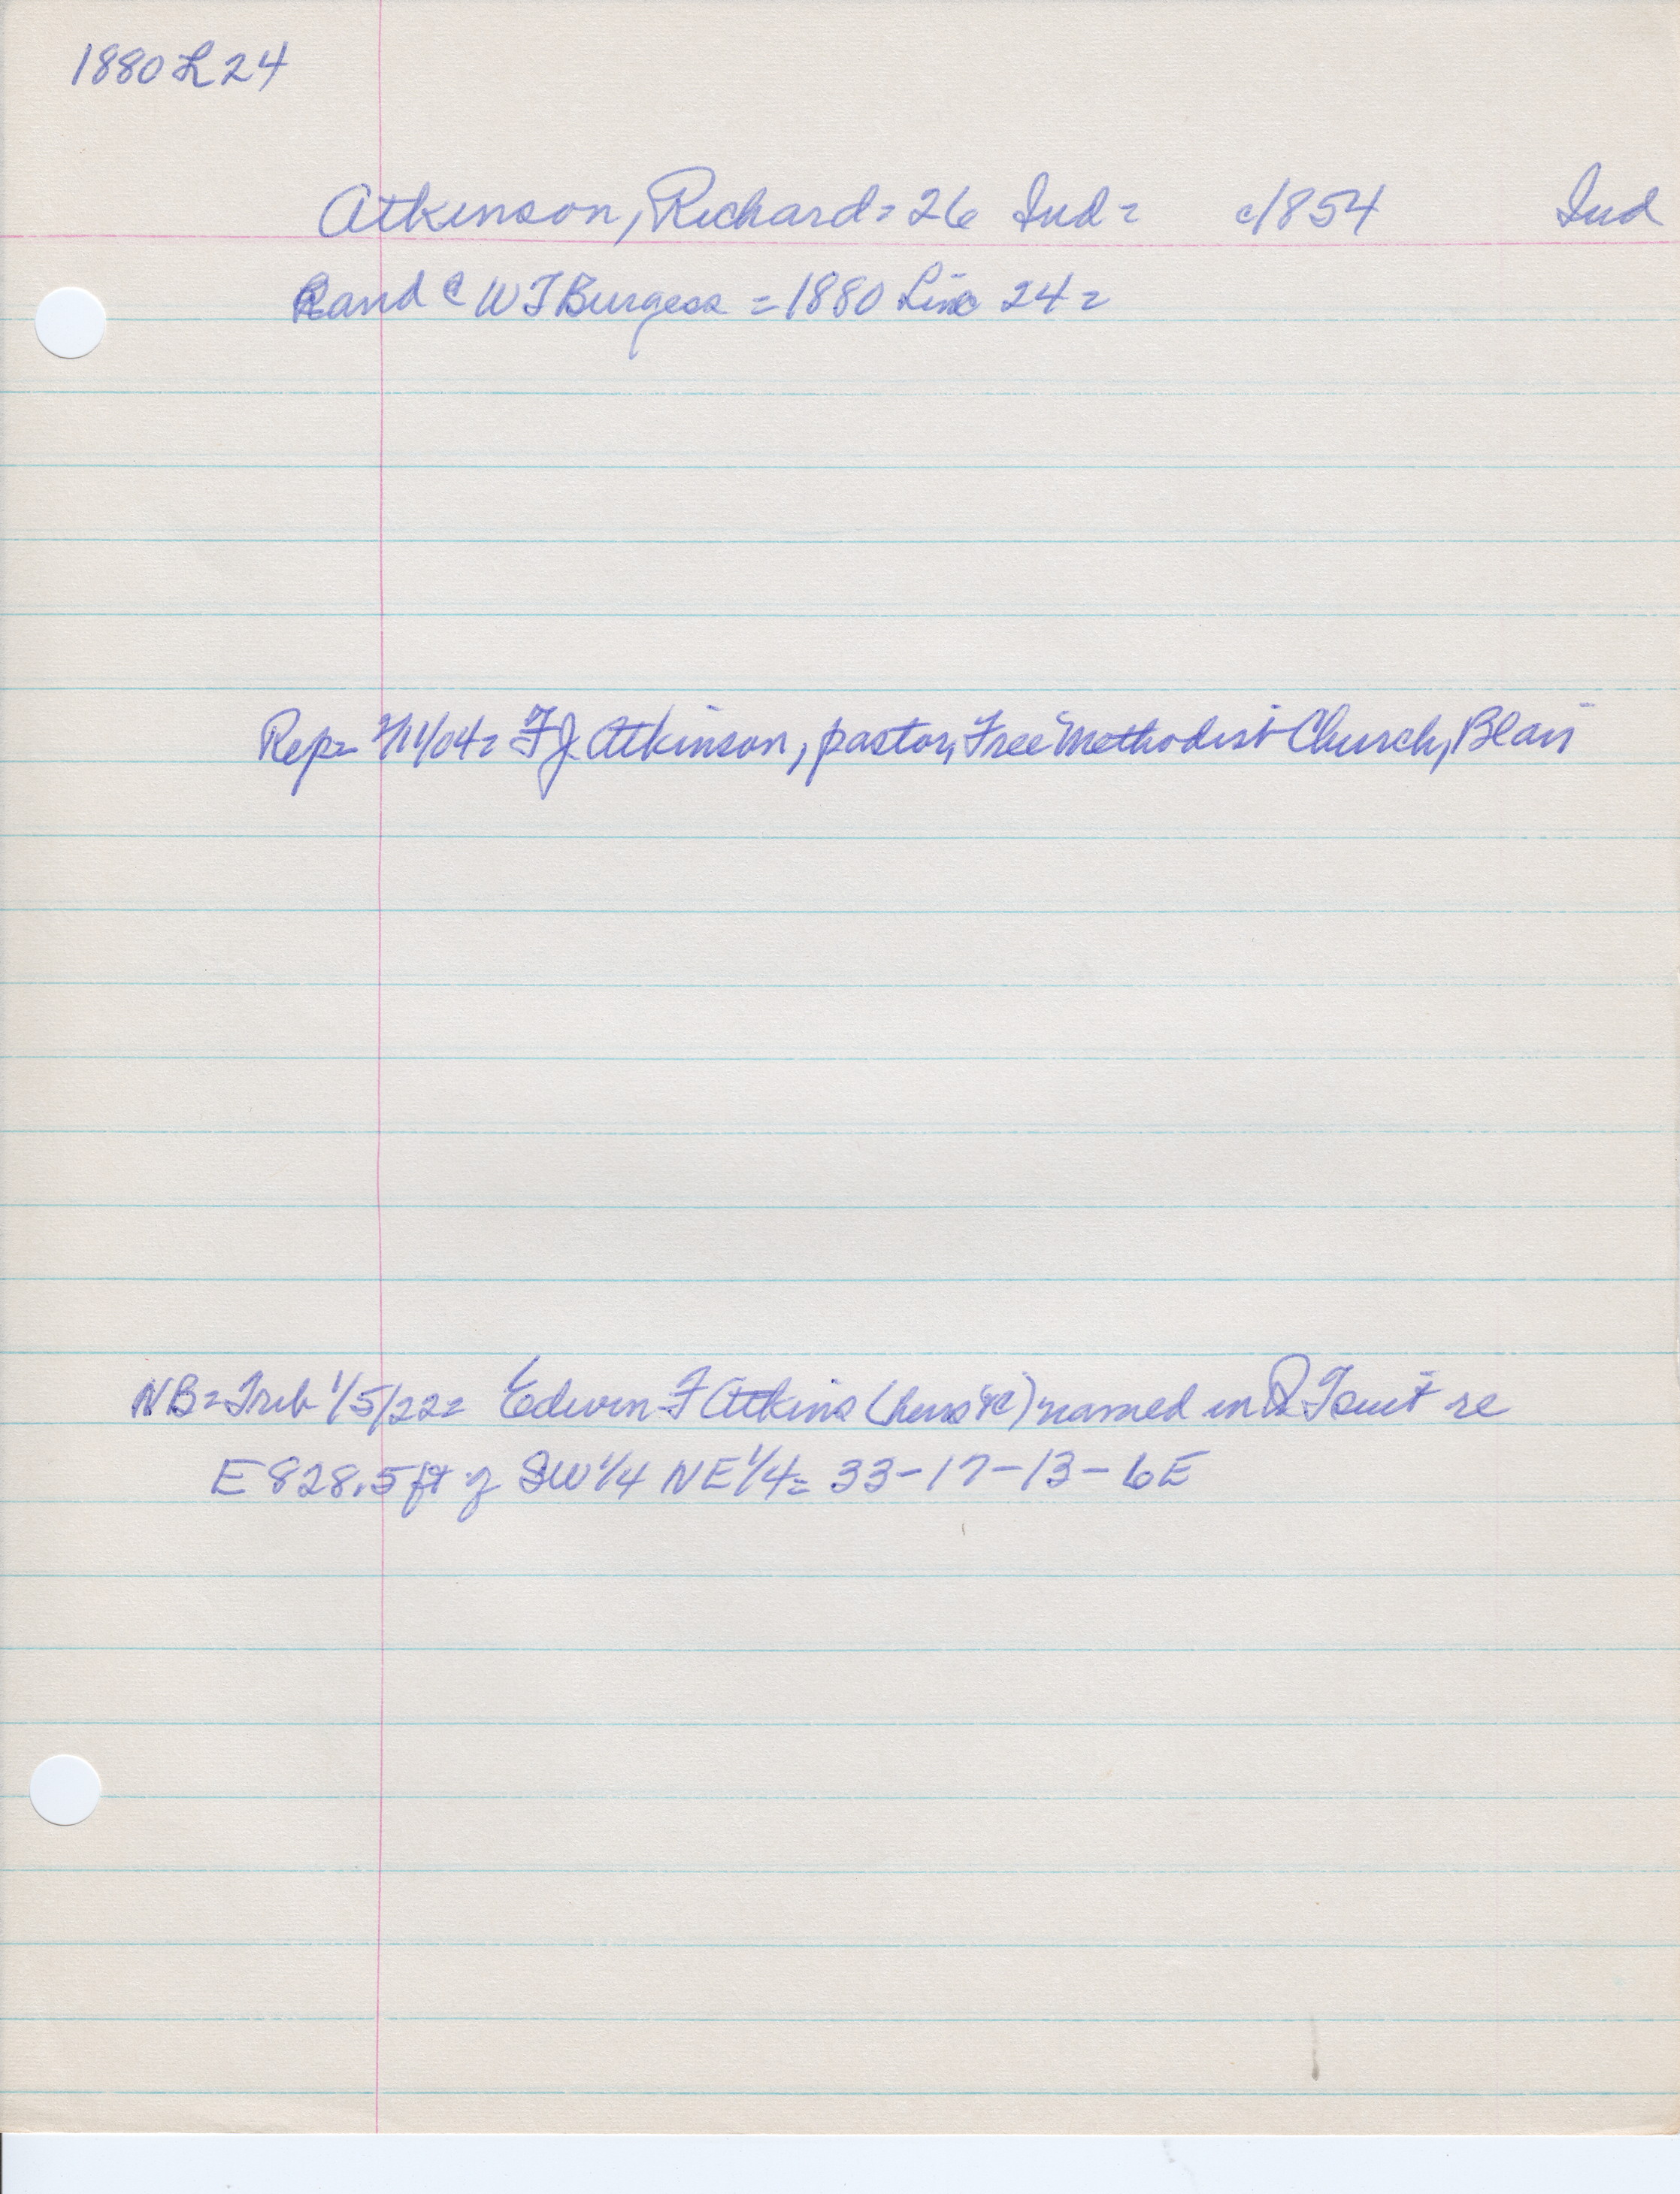 1880 L 24
Atkinson, Richard = 26 Ind = c/1854 Ind
Rand @ W T Burgess = 1880 Line 24 =
Rep = /04 = F J Atkinson, pastor, Free Methodist Church, Blair
NB = Trib 1/5/22 = Edwin F Atkins (heirs &c) named in Q T suit re
E 828.5 ft of SW 1/4 NE 1/4 = 33-17-13-6E